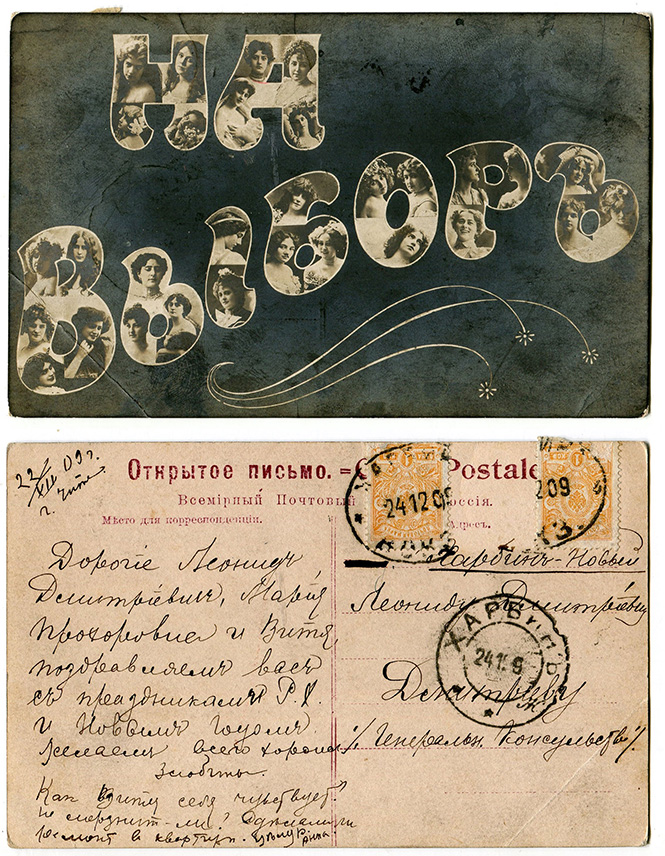 НА
ВЫБОРЪ
22/XII 09 г.
г. Чита
Открытое письмо. = Postale
Всемірный Почтовый Россія.
Мѣсто для корреспонденціи. Адресъ.
24 12 09
209
Дорогіе Леонидъ
Дмитріевич, Марія
Прохоровна и Витя,
поздравляемъ васъ
съ праздникамъ Р. Х.
и Новымъ годомъ.
Желаемъ всего хорош
Как Витя себя чувствует?
не ли?
ремонт в квартир.
Харбинъ-Новый
Леониду Дмитріевичу
Дмитріеву
Генеральн. Консульство
ХАРБИНЪ